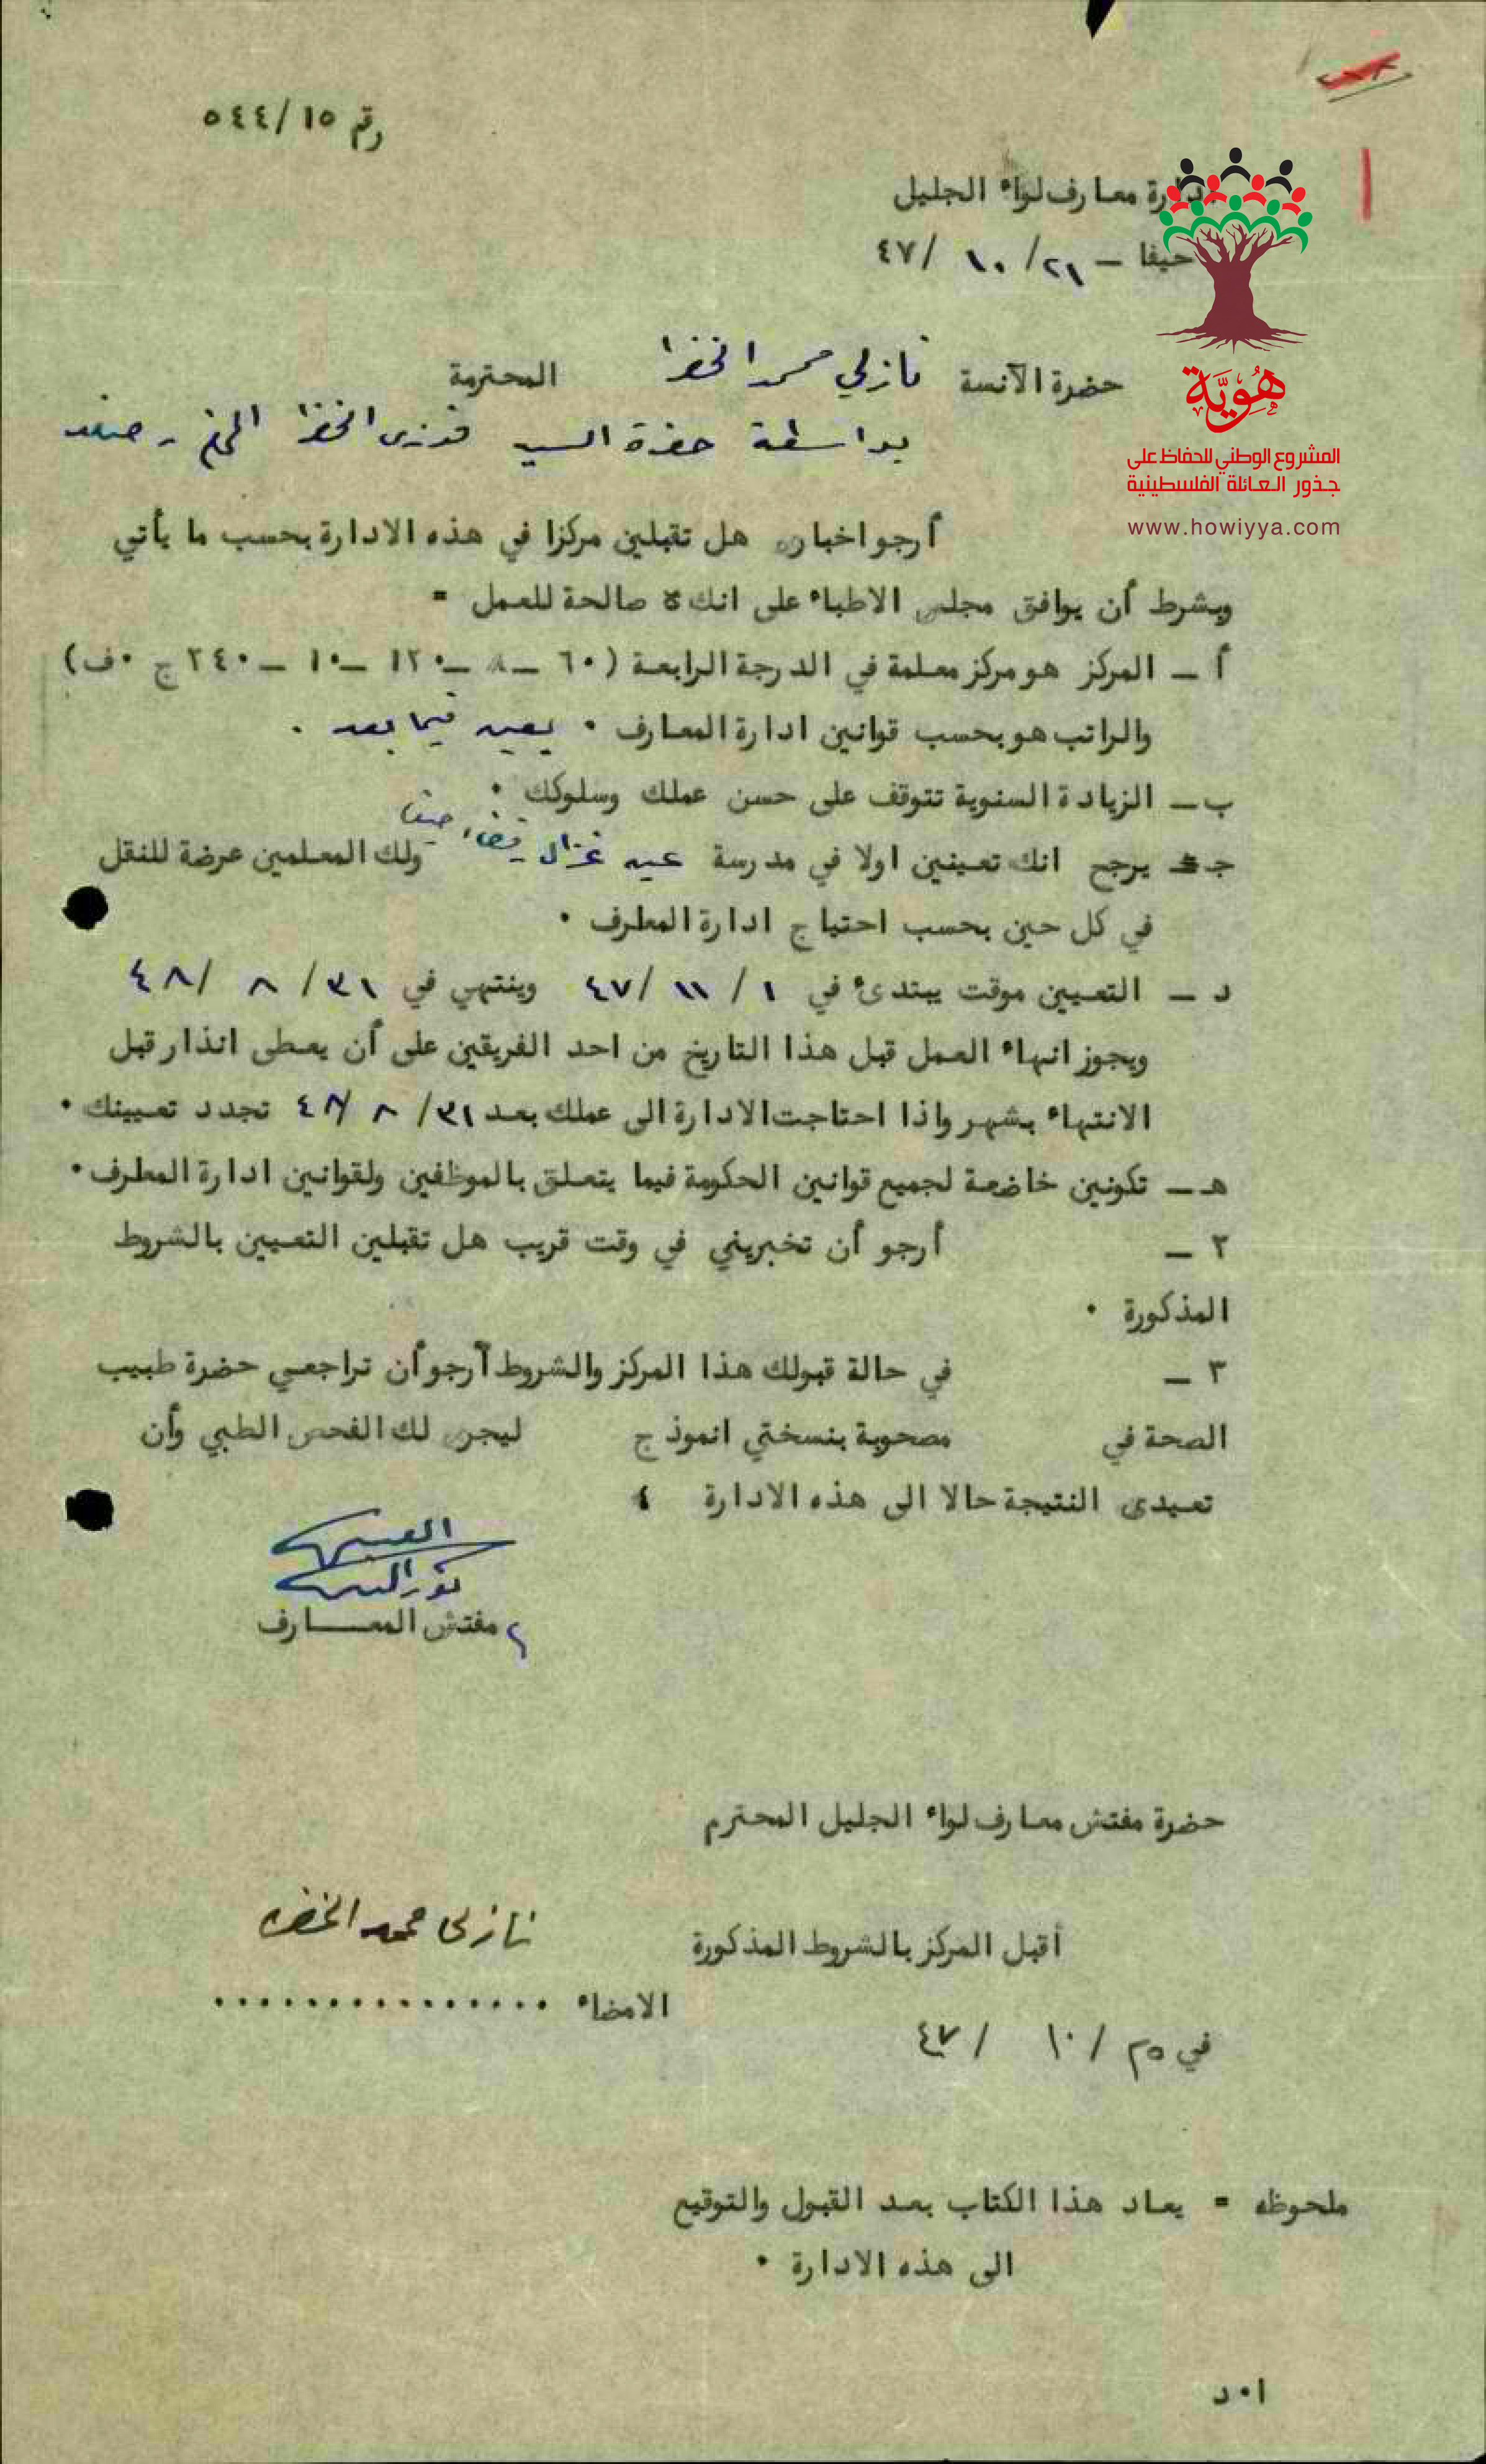 رقم ٥٤٤/١٥
ادارة معارف لواء الجليل
حيفا – ٢١/ ١٠ /٤٧
هوية
المشروع الوطني للحفاظ على
جذور العائلة الفلسطينية
www.howiyya.com
حضرة الآنسة نازلي محمد الخضرا المحترمة
بواسطة حضرة السيد فوزي الخضرا المحترم - صفد
أرجو اخباري هل تقبلين مركزا في هذه الادارة بحسب ما يأتي
وبشرط أن يوافق مجلس الاطباء على انك صالحة للعمل =
أ – المركز هو مركز معلمة في الدرجة الرابعة (٦٠ – ٨ – ١٢٠ – ١٠ – ٢٤٠ ج ٠ف)
والراتب هو بحسب قوانين ادارة المعارف ٠ يعين فيما بعد .
ب – الزيادة السنوية تتوقف على حسن عملك وسلوكك ٠
ج – يرجح انك تعينين اولا في مدرسة عين غزال قضاء حيفا ولك المعلمين عرضة للنقل
في كل حين بحسب احتياج ادارة المعارف ٠
د – التعيين موقت يبتدئ في ١ / ١١ /٤٧ وينتهي في ٣١/ ٨ /٤٨
ويجوز انهاء العمل قبل هذا التاريخ من احد الفريقين على أن يعطى انذار قبل
الانتهاء بشهر واذا احتاجت الادارة الى عملك بعد ٣١/ ٨ /٤٨ تجدد تعيينك ٠
هـ – تكونين خاضعة لجميع قوانين الحكومة فيما يتعلق بالموظفين ولقوانين ادارة المعارف ٠
٢ – أرجو أن تخبريني في وقت قريب هل تقبلين التعيين بالشروط
المذكورة ٠
٣ – في حالة قبولك هذا المركز والشروط أرجو أن تراجعي حضرة طبيب
الصحة في مصحوبة بنسختي انموذج ليجرى لك الفحص الطبي وأن
تعيدى النتيجة حالا الى هذه الادارة ٤
مفتش المعـــارف
حضرة مفتش معارف لواء الجليل المحترم
أقبل المركز بالشروط المذكورة نازلي محمد الخضرا
الامضاء ................
في ٢٥ / ١٠ / ٤٧
ملحوظه = يعاد هذا الكتاب بعد القبول والتوقيع
الى هذه الادارة ٠
ا٠د